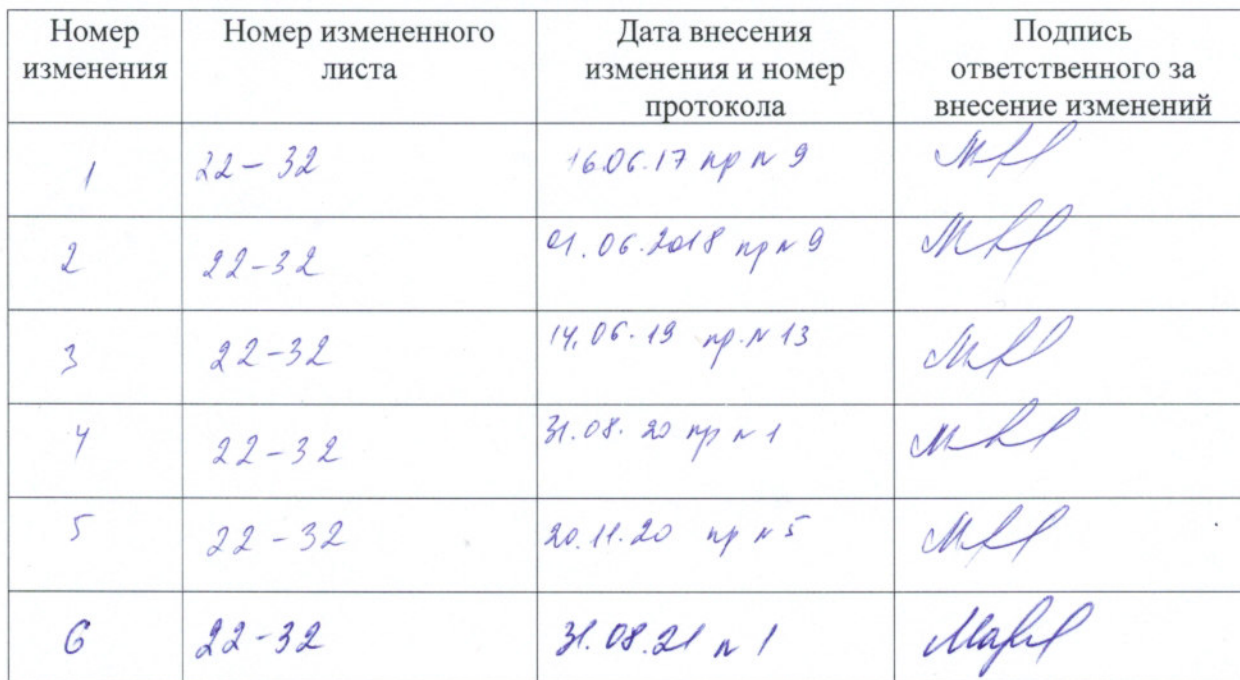 Номер изменения
Номер измененного листа
Дата внесения изменения и номер протокола
Подпись ответственного за внесение изменений
1 22-32 16.06.17 пр N 9
2 22-32 01.06.2018 пр N 9
3 22-32 14.06.19 пр. N 13
4 22-32 31.08.20 пр N 1
5 22-32 20.11.20 пр N 5
6 22-32 31.08.21 N 1